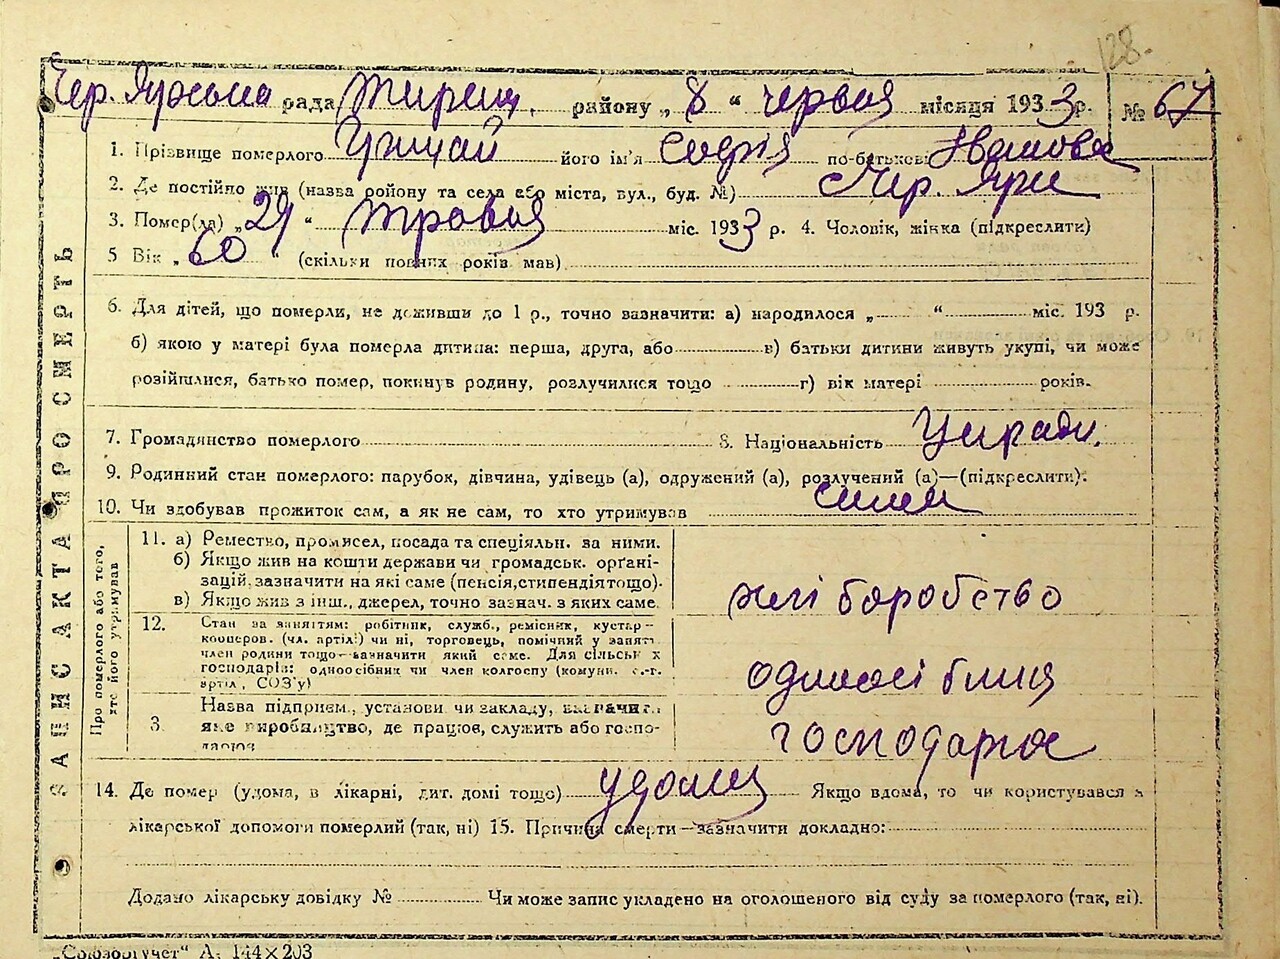 128.
Чер. Ярська рада Тирен. району „8" червня місяця 1933 р. № 67
1. Прізвище померлого його ім'я Софія по-батькові Іванова
2. Де постійно жив (назва району та села або міста, вул., буд. №) Чер. Яри
3. Помер(ла) „29" травня міс. 1933 р. 4. Чоловік, жінка (підкреслити)
5 Вік „60" (скільки повних років мав)
6. Для дітей, що померли, не доживши до 1 р., точно зазначити: а) народилося „ " міс. 193 р.
б) якою у матері була померла дитина: перша, друга, або в) батьки дитини живуть укупі, чи може
розійшлися, батько помер, покинув родину, розлучилися тощо г) вік матері років.
7. Громадянство померлого 8. Національність
9. Родинний стан померлого: парубок, дівчина, удівець (а), одружений (а), розлучений (а)—(підкреслити).
10. Чи здобував прожиток сам, а як не сам, то хто утримував
ЗАПИС АКТА ПРО СМЕРТЬ
Про померлого або того, хто його утримував
11. а) Ремество, промисел, посада та спеціяльн. за ними.
б) Якщо жив на кошти держави чи громадськ. орґані-
зацій, зазначити на які саме (пенсія, стипендія тощо).
в) Якщо жив з інш., джерел, точно зазнач. з яких саме.
хліборобство
12. Стан за заняттям: робітник, служб., ремісник, кустар-
кооперов. (чл. артілі) чи ні, торговець, помічний у занятті
член родини тощо—зазначити який саме. Для сільськ х
господарів: одноосібник чи член колгоспу (комуни, с.-г.
артіл, СОЗ'у)
3. Назва підприєм., установи чи закладу, визначити
яке виробництво, де працює, служить або госпо-
дарює
господарює
14. Де помер (удома, в лікарні, дит. домі тощо) удома Якщо вдома, то чи користувався з
лікарської допомоги померлий (так, ні) 15. Причина смерти—зазначити докладно:
Додано лікарську довідку № Чи може запис укладено на оголошеного від суду за померлого (так, ні).
„Союзоргучет" А, 144×203